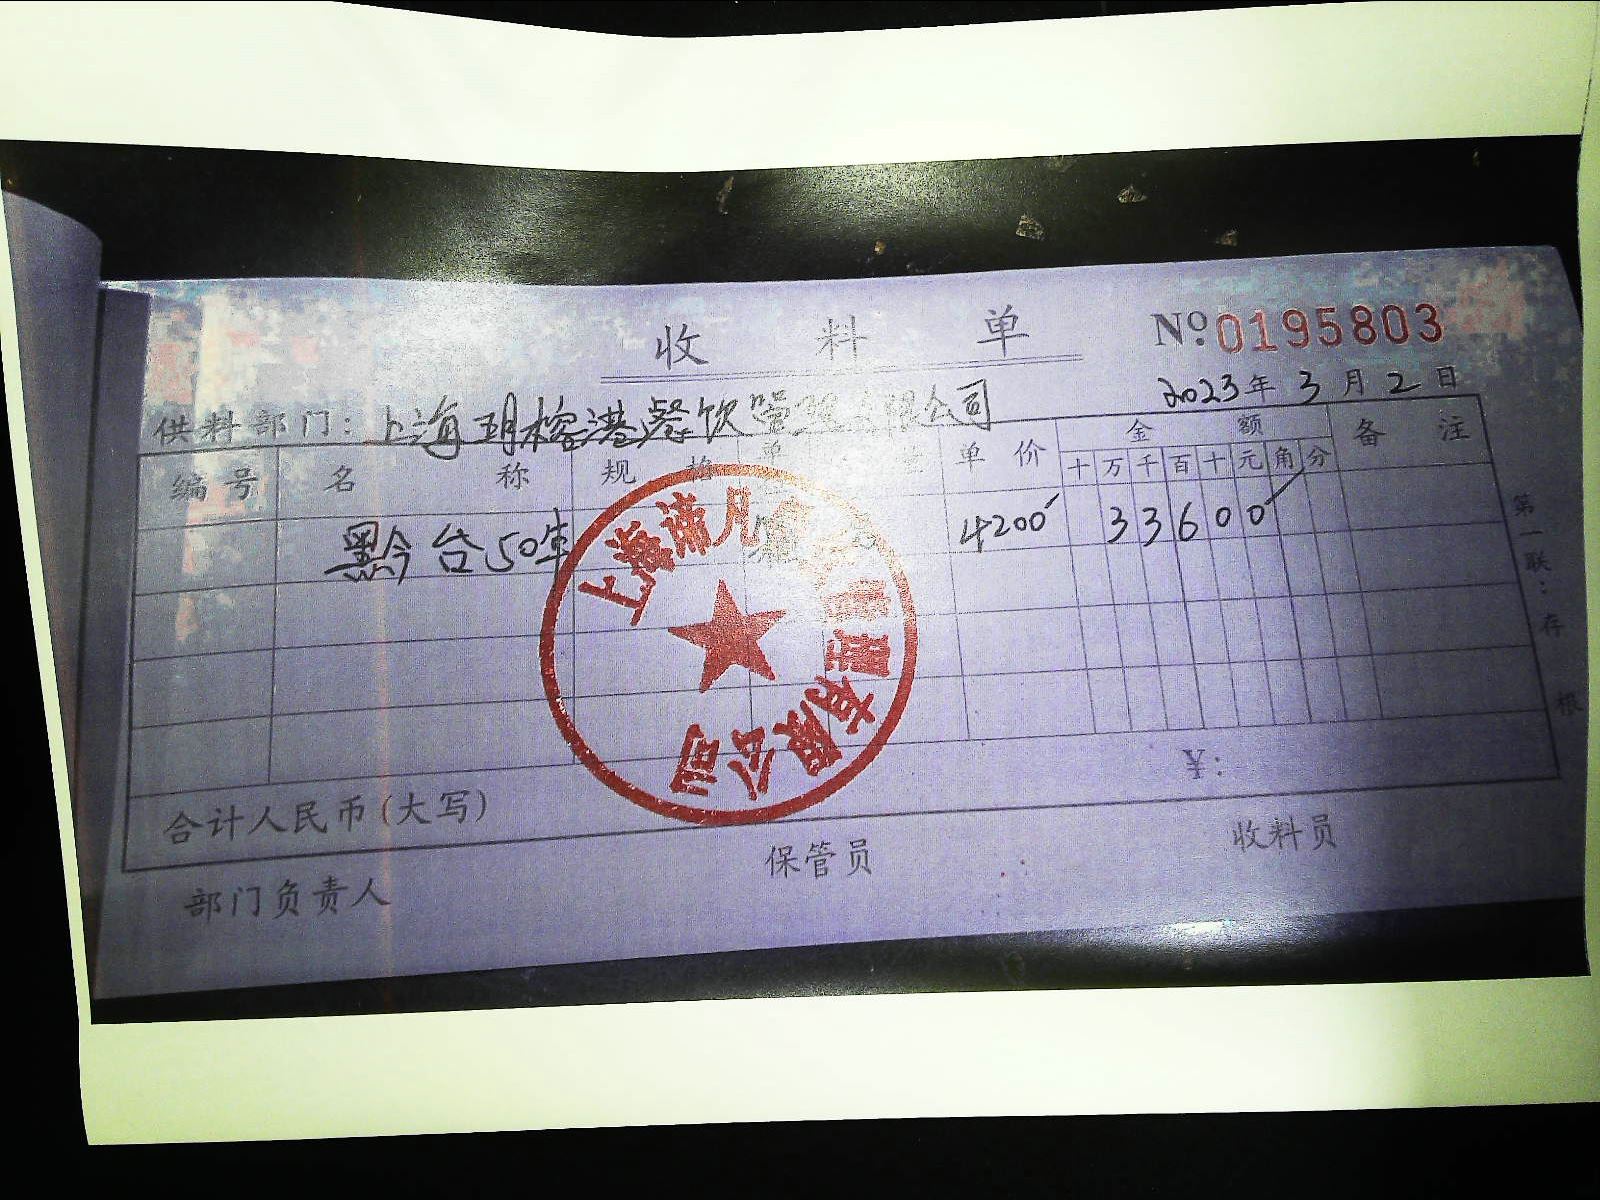 收料单
№0195803
2023年3月2日
供料部门：上海玥榕港餐饮管理有限公司
编号 名称 规格 单 量 单价 金额 备注
十万千百十元角分
黔台50年 4200 33600
合计人民币(大写) ¥：
部门负责人 保管员 收料员
第一联：存根
上海 管理有限公司